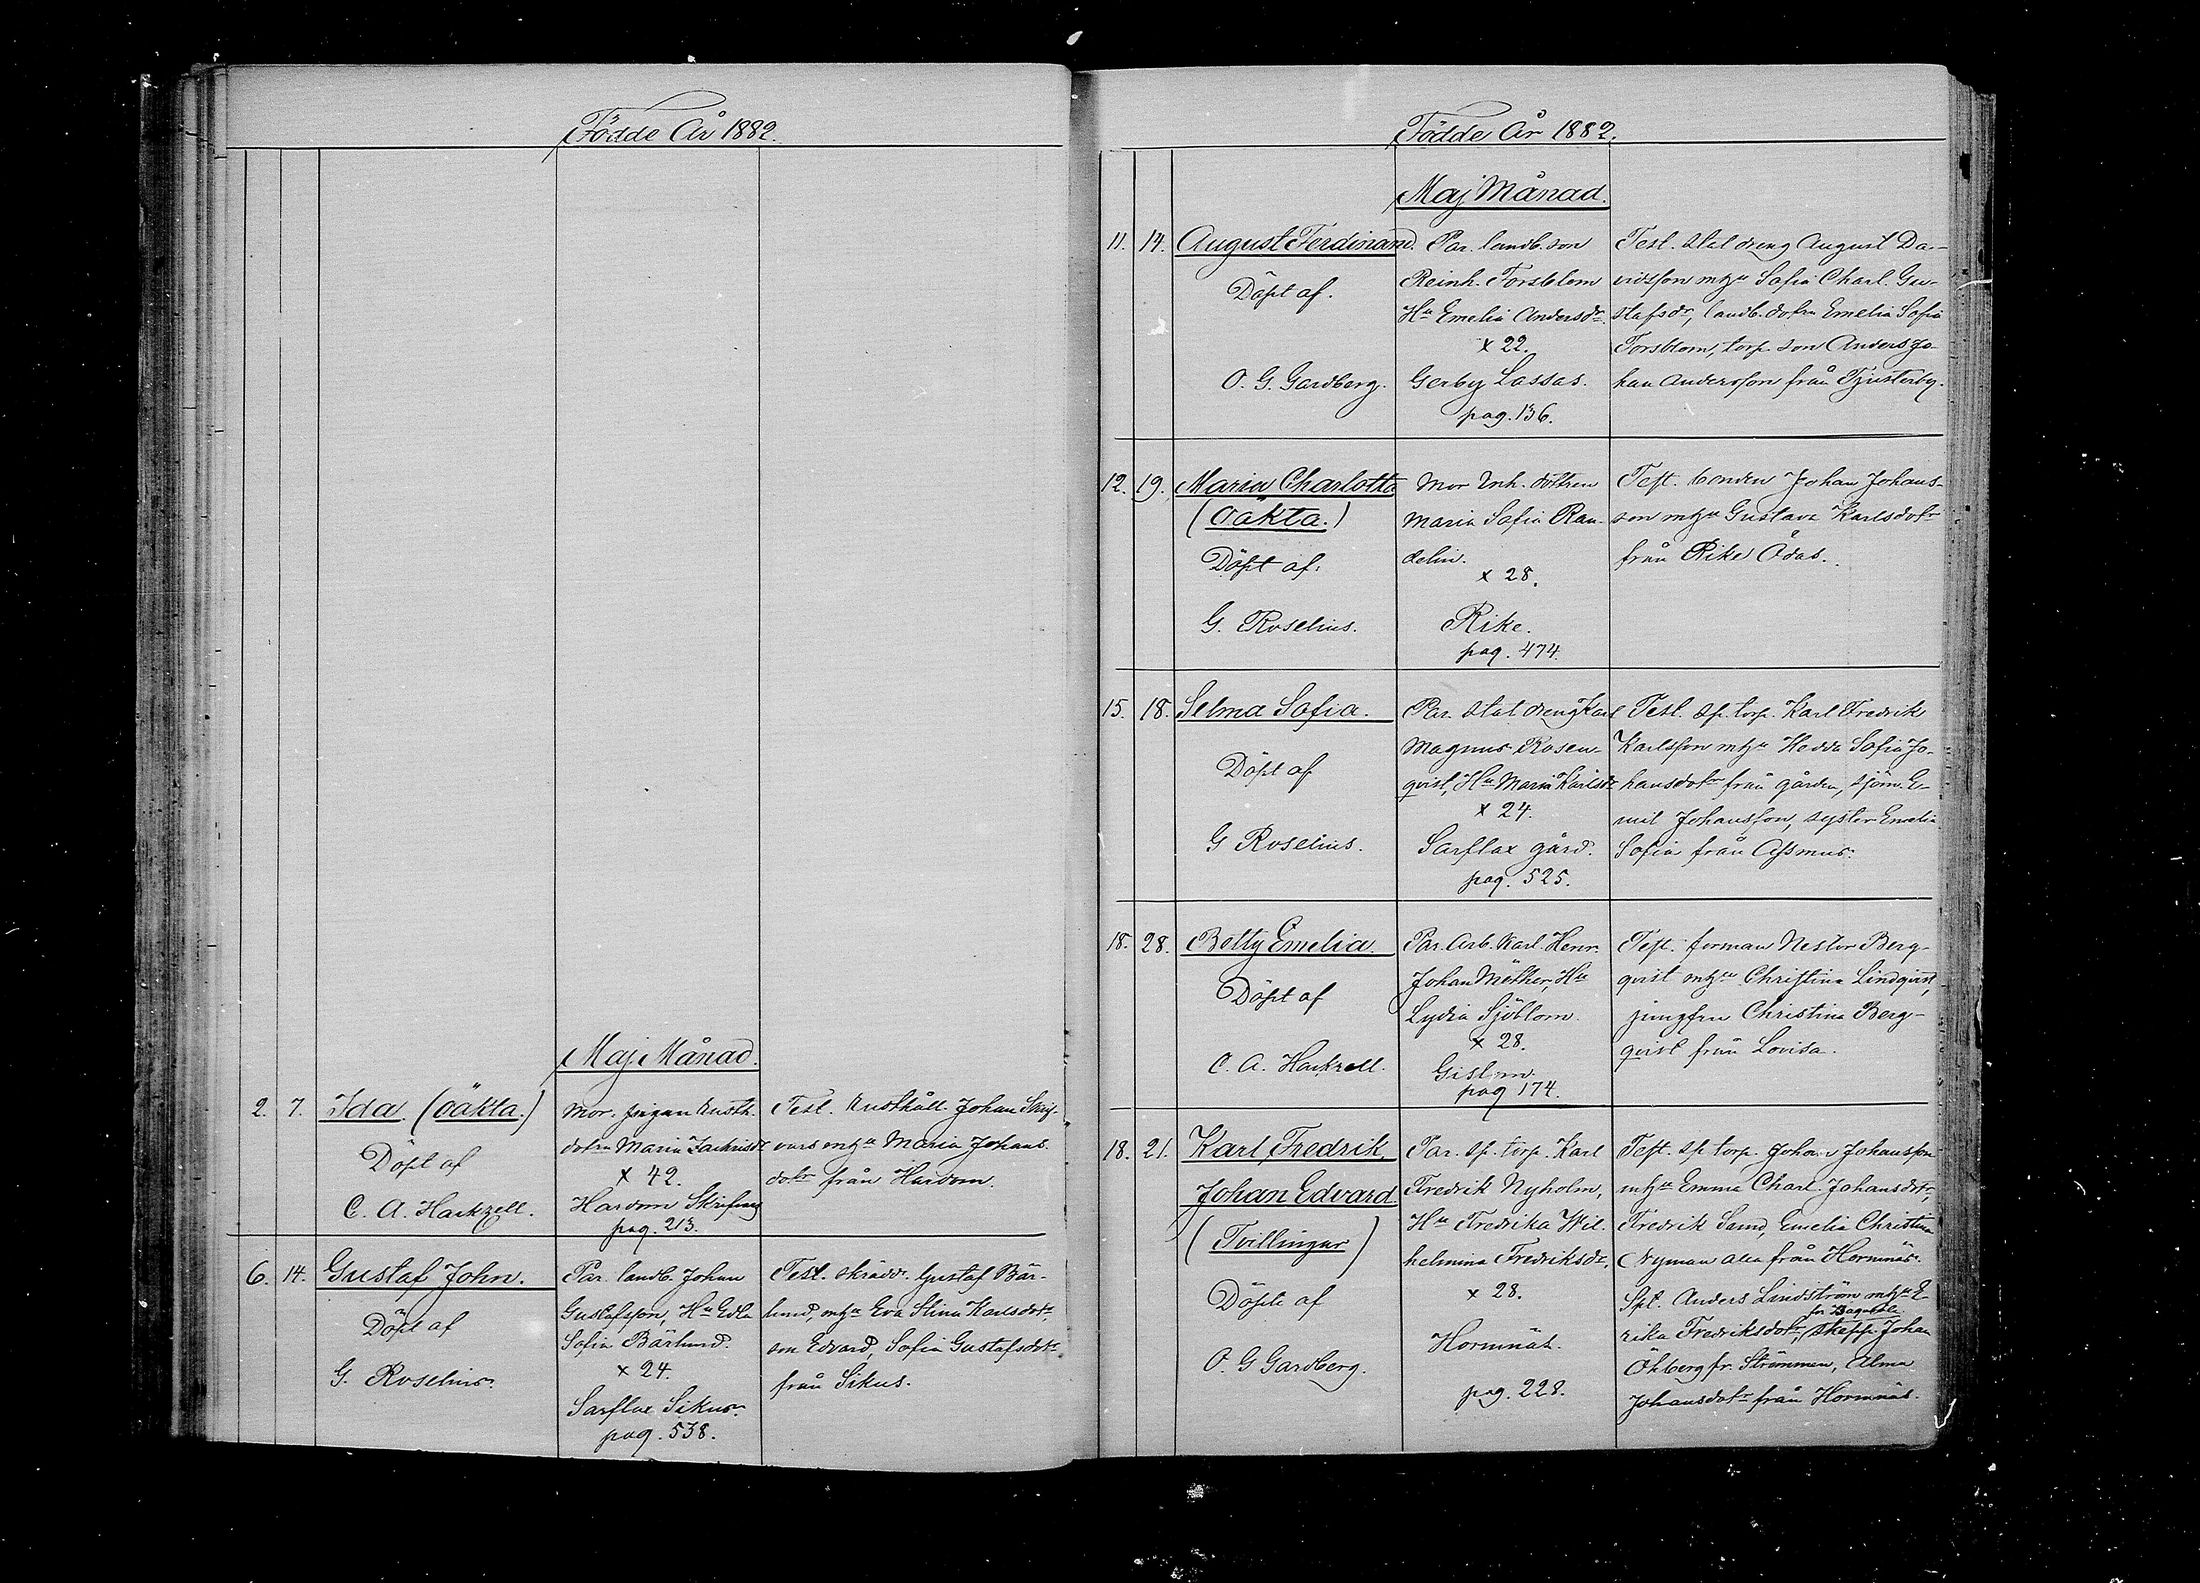 Födde År 1882.
Maj Månad.
2. 7. Ida (Oäkta.)
Döpt af
C. A. Hackzell.
Mor. pigan Rusth.
dotrn Maria Zachrisdr
x 42.
Hardom Skrifvars
pag. 213.
Test. Rusthåll. Johan Skrif-
vars mhu Maria Johans
dotr från Hardom.
6. 14. Gustaf John.
Döpt af
G. Roselius.
Par. landb. Johan
Gustafsson, Hu Edla
Sofia Bärlund.
x 24.
Sarflax Sikus.
pag. 538.
Test. skrädd. Gustaf Bär-
lund, mhu Eva Stina Karlsdotr
son Edvard, Sofia Gustafsdotr
från Sikus.
Födde År 1882.
Maj Månad.
11. 14. August Ferdinand.
Döpt af.
O. G. Gardberg.
Par. landb. son
Reinh. Forsblom
Hu Emelia Andersdr.
x 22.
Gerby Lassas.
pag. 136.
Test. stat dreng August Da-
vidsson mhu Sofia Charl. Gu-
stafsdr, landb. dotrn Emelia Sofia
Forsblom, torp. son Anders Jo-
han Andersson från Tjusterby.
12. 19. Maria Charlotta
(Oäkta.)
Döpt af.
G. Roselius.
Mor Inh. dottren
Maria Sofia Ran-
delin.
x 28.
Rike.
pag. 474.
Test. bonden Johan Johans-
son mhu Gustava Karlsdotr
från Rike Ådas.
15. 18. Selma Sofia.
Döpt af
G Roselius.
Par. stat dreng Karl
Magnus Rosen-
qvist, Hu Maria Karlsdr
x 24.
Sarflax gård.
pag. 525.
Test. sp. torp. Karl Fredrik
Karlsson mhu Hedda Sofia Jo-
hansdotr från gården, sjöm. E-
mil Johansson, syster Emelia
Sofia från Assmus.
18. 28. Betty Emelia.
Döpt af
C. A. Hackzell.
Par. Arb. Karl. Henr.
Johan Möther, Hu
Lydia Sjöblom.
x 28.
Gislom
pag 174.
Test. forman Nestor Berg-
qvist mhu Christina Lindqvist,
jungfru Christina Berg-
qvist från Lovisa.
18. 21. Karl Fredrik,
Johan Edvard
(Tvillingar)
Döpte af
O. G Gardberg.
Par. sp. torp. Karl
Fredrik Nyholm,
Hu Fredrika Wil-
helmina Fredriksdr,
x 28.
Hormnäs.
pag. 228.
Test. sp torp. Johan Johansson
mhu Emma Charl. Johansdotr,
Fredrik Sund, Emelia Christina
Nyman alla från Hormnäs.
Spt. Anders Lindström mhu E-
rika Fredriksdotr, skepp. Johan
Ökberg fr. Strömmen, Alma
Johansdotr från Hormnäs.